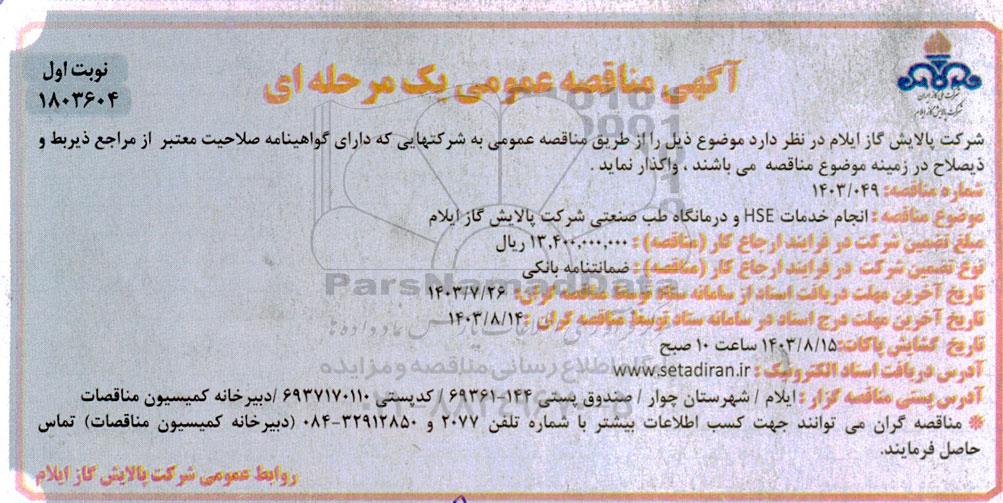 شرکت ملی گاز ایران
شرکت پالایش گاز ایلام
نوبت اول
۱۸۰۳۶۰۴
آگهی مناقصه عمومی یک مرحله ای
شرکت پالایش گاز ایلام در نظر دارد موضوع ذیل را از طریق مناقصه عمومی به شرکتهایی که دارای گواهینامه صلاحیت معتبر از مراجع ذیربط و
ذیصلاح در زمینه موضوع مناقصه می باشند ، واگذار نماید .
شماره مناقصه: ۱۴۰۳/۰۴۹
موضوع مناقصه : انجام خدمات HSE و درمانگاه طب صنعتی شرکت پالایش گاز ایلام
مبلغ تضمین شرکت در فرایند ارجاع کار (مناقصه) : ۱۳,۴۰۰,۰۰۰,۰۰۰ ریال
نوع تضمین شرکت در فرایند ارجاع کار (مناقصه) : ضمانتنامه بانکی
تاریخ آخرین مهلت دریافت اسناد از سامانه ستاد توسط مناقصه گران: ۱۴۰۳/۷/۲۶
تاریخ آخرین مهلت درج اسناد در سامانه ستاد توسط مناقصه گران : ۱۴۰۳/۸/۱۴
تاریخ گشایش پاکات: ۱۴۰۳/۸/۱۵ ساعت ۱۰ صبح
آدرس دریافت اسناد الکترونیک : www.setadiran.ir
آدرس پستی مناقصه گزار : ایلام / شهرستان چوار / صندوق پستی ۱۴۴-۶۹۳۶۱ / کدپستی ۶۹۳۷۱۷۰۱۱۰ /دبیرخانه کمیسیون مناقصات
* مناقصه گران می توانند جهت کسب اطلاعات بیشتر با شماره تلفن ۲۰۷۷ و ۳۲۹۱۲۸۵۰-۰۸۴ (دبیرخانه کمیسیون مناقصات) تماس
حاصل فرمایند.
روابط عمومی شرکت پالایش گاز ایلام
ParsNamadData
پایگاه اطلاع رسانی مناقصه و مزایده